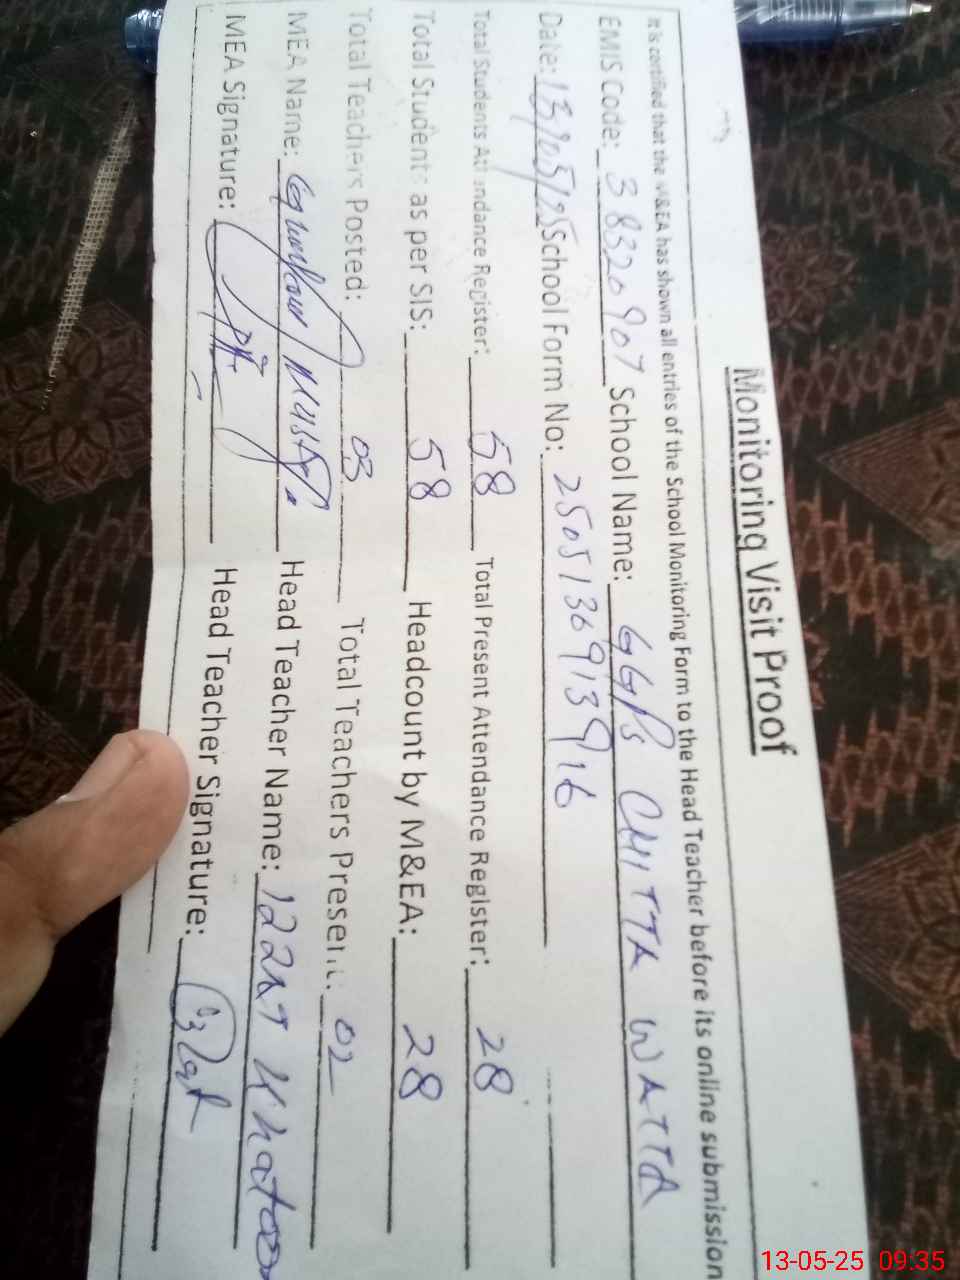 Monitoring Visit Proof
It is certified that the M&EA has shown all entries of the School Monitoring Form to the Head Teacher before its online submission
EMIS Code: 38320907 School Name: GGPS CHITTA WATTA
Date: 13/05/25 School Form No: 2505136913916
Total Students Attendance Register: 58 Total Present Attendance Register: 28
Total Students as per SIS: 58 Headcount by M&EA: 28
Total Teachers Posted: 03 Total Teachers Present: 02
MEA Name: Head Teacher Name: Izzat Khatoon
MEA Signature: Head Teacher Signature:
13-05-25 09:35